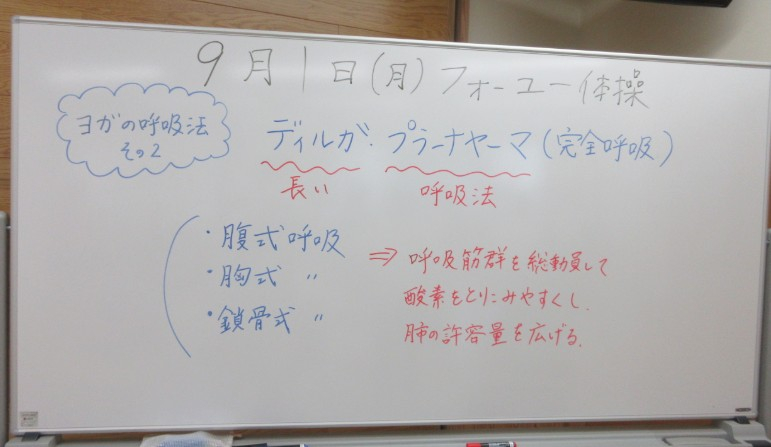 9月1日(月)フォーユー体操
ヨガの呼吸法
その2
ディルガ・プラーナヤーマ(完全呼吸)
長い 呼吸法
・腹式呼吸
・胸式 〃
・鎖骨式 〃
⇒ 呼吸筋群を総動員して
酸素をとりこみやすくし、
肺の許容量を広げる。